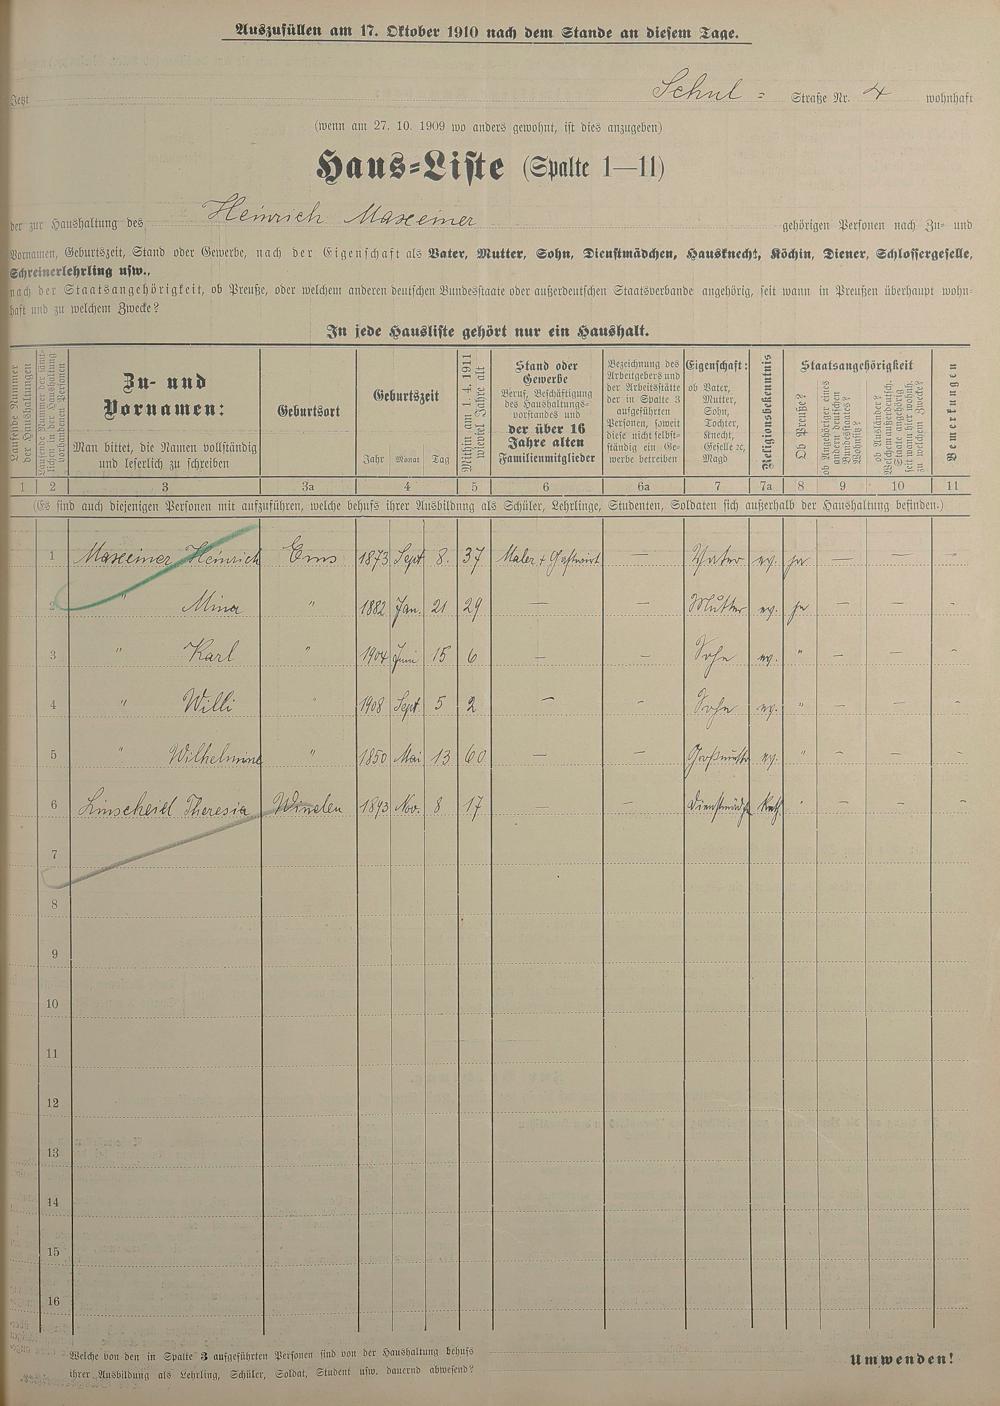 Auszufüllen am 17. Oktober 1910 nach dem Stande an diesem Tage.
Jetzt Schul = Straße Nr. 4 wohnhaft
(wenn am 27. 10. 1909 wo anders gewohnt, ist dies anzugeben)
Haus-Liste (Spalte 1—11)
der zur Haushaltung des Heinrich Maxeiner gehörigen Personen nach Zu- und
Vornamen, Geburtszeit, Stand oder Gewerbe, nach der Eigenschaft als Vater, Mutter, Sohn, Dienstmädchen, Hausknecht, Köchin, Diener, Schlossergeselle,
Schreinerlehrling usw.,
nach der Staatsangehörigkeit, ob Preuße, oder welchem anderen deutschen Bundesstaate oder außerdeutschen Staatsverbande angehörig, seit wann in Preußen überhaupt wohn-
haft und zu welchem Zwecke?
In jede Hausliste gehört nur ein Haushalt.
Laufende Nummer
der Haushaltungen
Laufende Nummer der sämt-
lichen in der Haushaltung
vorhandenen Personen
Zu- und
Vornamen:
Man bittet, die Namen vollständig
und leserlich zu schreiben
Geburtsort
Geburtszeit
Jahr Monat Tag
Mithin am 1. 4. 1911
wieviel Jahre alt
Stand oder
Gewerbe
Beruf, Beschäftigung
des Haushaltungs-
vorstandes und
der über 16
Jahre alten
Familienmitglieder
Bezeichnung des
Arbeitgebers und
der Arbeitsstätte
der in Spalte 3
aufgeführten
Personen, soweit
diese nicht selbst-
ständig ein Ge-
werbe betreiben
Eigenschaft:
ob Vater,
Mutter,
Sohn,
Tochter,
Knecht,
Geselle ꝛc,
Magd
Religionsbekenntnis
Staatsangehörigkeit
Ob Preuße?
ob Angehöriger eines
andern deutschen
Bundesstaates?
Wohnsitz?
ob Ausländer?
Welchem außerdeutsch.
Staate angehörig
seit wann hier wohnh.
zu welchem Zwecke?
Bemerkungen
1 2 3 3a 4 5 6 6a 7 7a 8 9 10 11
(Es sind auch diejenigen Personen mit aufzuführen, welche behufs ihrer Ausbildung als Schüler, Lehrlinge, Studenten, Soldaten sich außerhalb der Haushaltung befinden.)
1 Maxeiner Heinrich Ems 1873 Sept 8. 37 Maler + Gastwirt — Vater ev. ja — — -
2 " Mina " 1882 Jan. 21 29 — — Mutter ev. ja — — -
3 " Karl " 1904 Juni 15 6 — — Sohn ev. " — — -
4 " Willi " 1908 Sept. 5 2 — - Sohn ev. " — — -
5 " Wilhelmine " 1850 Mai 13 60 — — Großmutter ev. " — — -
6 Linscheid Theresia Winden 1893 Nov. 8 17 — — Dienstmädch kath. " — — -
7
8
9
10
11
12
13
14
15
16
Welche von den in Spalte 3 aufgeführten Personen sind von der Haushaltung behufs
ihrer Ausbildung als Lehrling, Schüler, Soldat, Student usw. dauernd abwesend?
Umwenden!